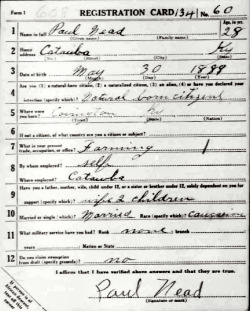 Form 1 608 REGISTRATION CARD 134 No. 60
1 Name in full Paul Nead Age, in yrs. 28
(Given name) (Family name)
2 Home address Catawba Ky
(No.) (Street) (City) (State)
3 Date of birth May 30 1889
(Month) (Day) (Year)
4 Are you (1) a natural-born citizen, (2) a naturalized citizen, (3) an alien, (4) or have you declared your
intention (specify which)? Natural born citizen
5 Where were you born? Ky
(Town) (State) (Nation)
6 If not a citizen, of what country are you a citizen or subject?
7 What is your present trade, occupation, or office? Farming
8 By whom employed? self
Where employed? Catawba
9 Have you a father, mother, wife, child under 12, or a sister or brother under 12, solely dependent on you for
support (specify which)? wife 2 children
10 Married or single (which)? Married Race (specify which)? Caucasian
11 What military service have you had? Rank none branch
years Nation or State
12 Do you claim exemption from draft (specify grounds)? no
I affirm that I have verified above answers and that they are true.
Paul Nead
(Signature or mark)